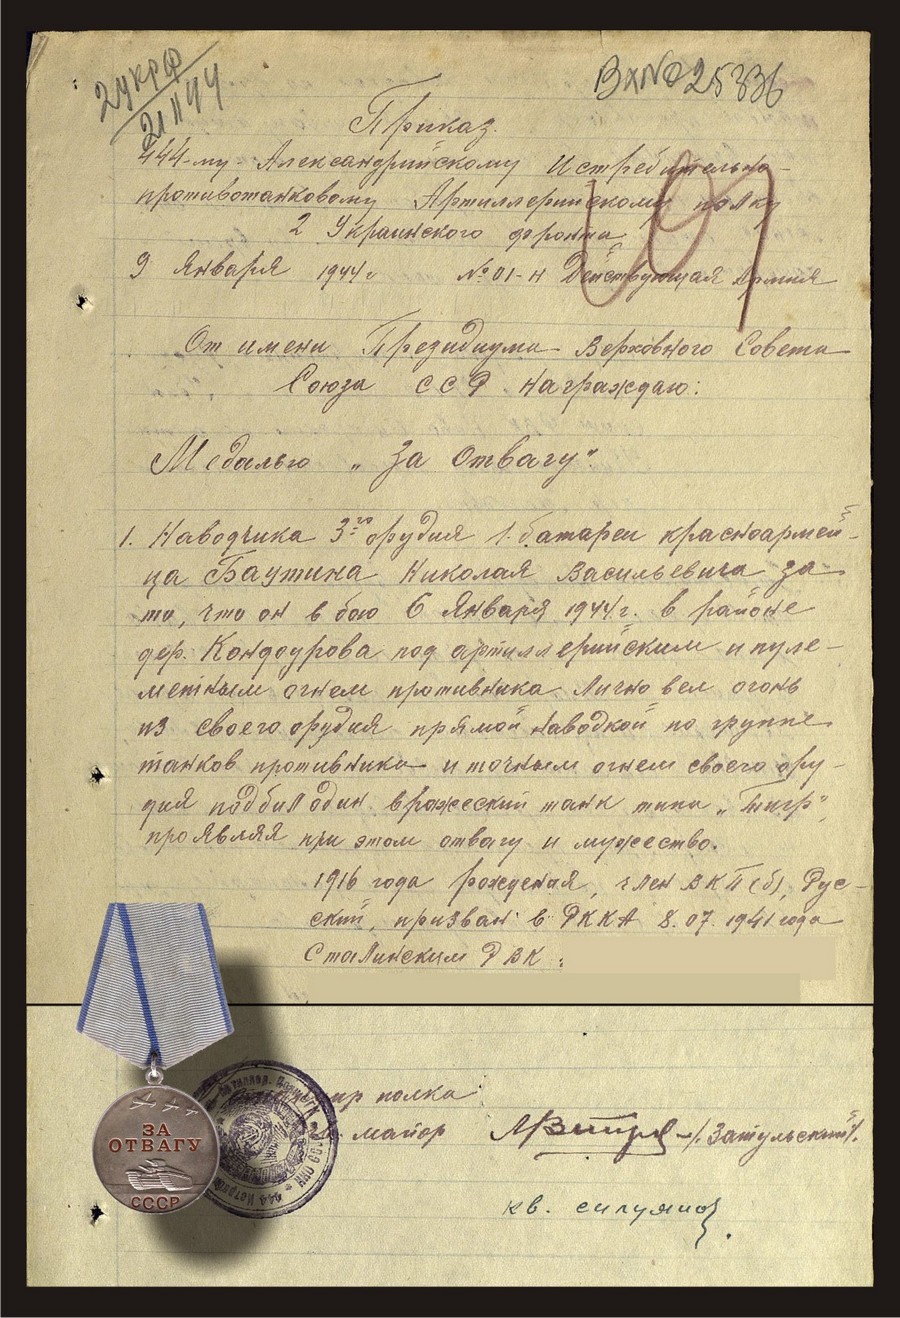 2 УКРФ
21 II 44
Вх № 25336
Приказ.
444-му Александрийскому Истребительно-
противотанковому Артиллерийскому полку
2 Украинского фронта
9 Января 1944 г. № 01-н Действующая Армия
От имени Президиума Верховного Совета
Союза ССР награждаю:
Медалью „За Отвагу".
1. Наводчика 3го орудия 1 батареи красноармей-
ца Баутина Николая Васильевича за
то, что он в бою 6 Января 1944 г. в районе
дер. Кондоурова под артиллерийским и пуле-
метным огнем противника лично вел огонь
из своего орудия прямой наводкой по группе
танков противника и точным огнем своего ору-
дия подбил один вражеский танк типа „Тигр",
проявляя при этом отвагу и мужество.
1916 года рождения, член ВКП(б), Рус-
ский, призван в РККА 8.07.1941 года
Сталинским РВК:
ир полка
майор /Затульский/.
ЗА
ОТВАГУ
СССР